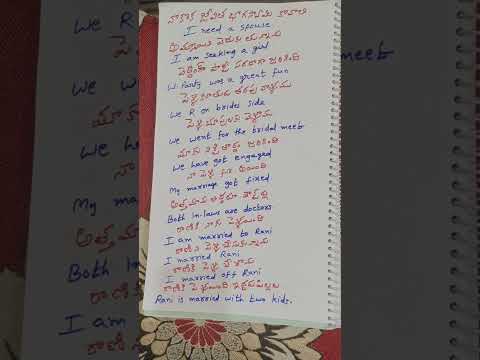 నాకొక జీవిత భాగస్వామి కావాలి
I need a spouse
అమ్మాయిని వెతుకుతున్నాను
I am seeking a girl
పెళ్ళిలో పార్టీ సరదాగా జరిగింది
W. Party was a great fun
పెళ్ళి కూతురు తరఫు వాళ్ళము
We R on brides side
పెళ్ళిచూపులకు వెళ్ళాము
We went for the bridal meet
మాకు నిశ్చితార్థం జరిగింది
We have got engaged
నా పెళ్ళి fix అయింది
My marriage got fixed
అత్తమామ ఇద్దరూ డాక్టర్లే
Both In-laws are doctors
రాణికి నాకు పెళ్ళయింది
I am married to Rani
రాణిని పెళ్ళి చేసుకున్నాను
I married Rani
రాణికి పెళ్ళి చేశాను
I married off Rani
రాణికి పెళ్ళయింది ఇద్దరు పిల్లలు
Rani is married with two kids.